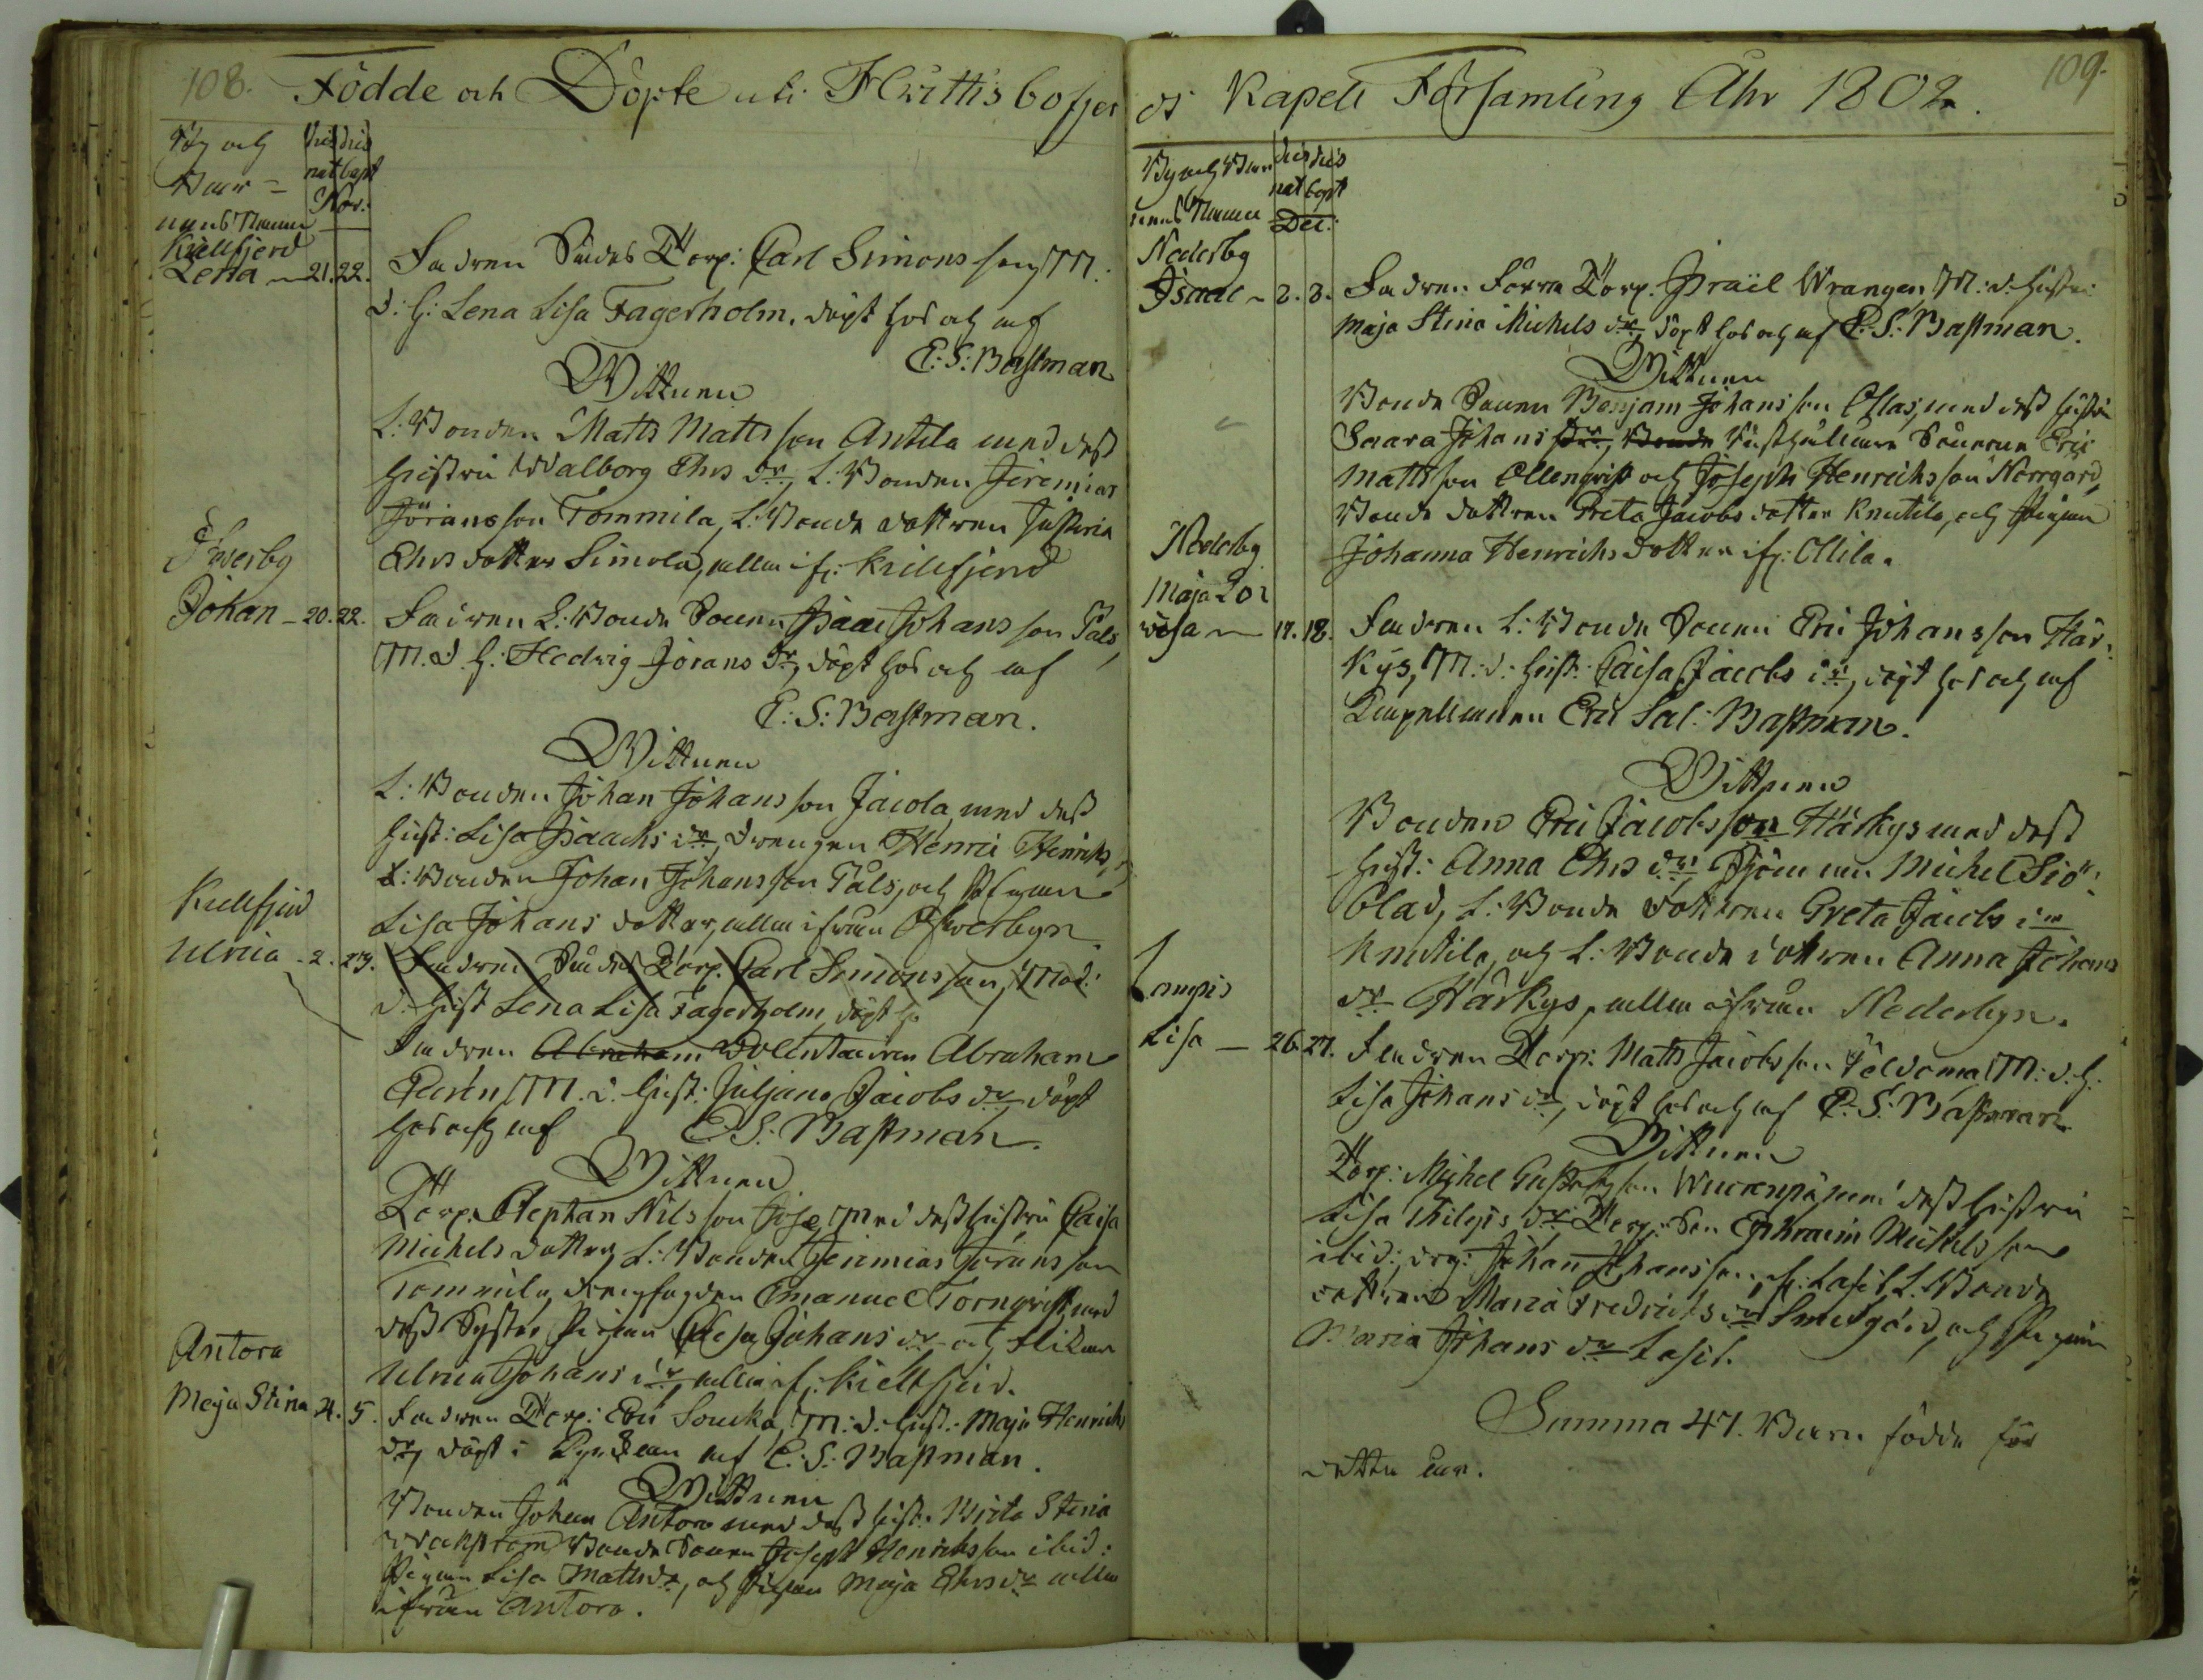 108. Födde och Döpte uti Hwittisbofjer
By och
Barn=
nens Namn
dies dies
nat bapt
Nov:
Kiellfjerd
Lena 21. 22. Fadren Torp: Carl Simonsson, M:
d: h: Lena Lisa Fagerholm, döpt hos och af
E: S: Bastman
Wittnen
L: Bonden Matts Mattsson Antila med dess
Hustru Walborg Ehrs dr, L: Bonden Jeremias
Jöransson Tommila, L: Bonde dottren
Ehrs dotter Simola, alla if: Kiellfjerd
Öfverby
Johan - 20. 22. Fadren L: Bonde Sonen Isaac Johansson Påls,
M. d. h: Hedvig Jörans dr, döpt hos och af
E: S: Bastman.
Wittnen
L: Bonden Johan Johansson Jacola, med dess
Hust: Lisa Isaachs dr, Drengen Henric Henrichs
L: Bonden Johan Johansson Påls, och Pigan
Lisa Johans dotter, alla ifrån Öfverbyn
Kiellfjerd
Ulrica - 2. 27. Fadren Torp. Carl Simonsson, Mod:
d: Hust Lena Lisa Fagerholm, döpt ho
Fadren Abraham Volentairen Abraham
M. d. Hust: Juljana Jacobs dr, döpt
hos och af E. S: Bastman.
Wittnen
Torp. Stephan Nilsson med dess Hustru Caisa
Michels dotter, L: Bonden Jeremias Jöransson
Tommila, Emanuel Törnqvist, med
dess Syster Pigan Johans dr och Flickan
Ulrica Johans dr alla if: Kiellfjerd.
Antora
Maja Stina 4. 5. Fadren Torp: Eric Soucka, M: d: Hust: Maja Henrichs
dr, döpt i Kyrckan af E: S: Bastman.
Wittnen
Bonden Johan Antora med dess Hust: Brita Stina
Bonde Sonen Joseph Henricksson ibid:
Pigan Lisa Matts dr, och Pigan Maja Ehrs dr alla
ifrån Antora.
ds Kapell Församling Åhr 1802. 109.
By och Bar
nens Namn
dies dies
nat bapt
Dec:
Nederby
Israel - 2. 3. Fadren Torp. Israël Wrangen, M: d: Hustru
Maja Stina Michels dr, döpt hos och af E: S: Bastman.
Wittnen
Bonde Sonen Benjam Johansson Ollas, med dess Hustru
Saara Johans dr, Bonde Sönerne Eric
Mattsson Ollenqvist och Joseph Henrichsson Norrgård,
Bonde dottren Greta Jacobs dotter Knutila, och Pigan
Johanna Henrichs dotter if: Ollila.
Nederby
Maja Lo
visa 17. 18. Fadren L: Bonde Sonen Eric Johansson Här-
kys, M: d: Hust: Caisa Jacobs dr, döpt hos och af
Kapellanen Eric Sal: Bastman.
Wittnen
Bonden Eric Jacobsson Härkys med dess
Hust: Anna Ehrs dr, Michel Siö-
blad, L: Bonde dottren Greta Jacobs dr
Knutila, och L: Bonde dottren Anna Johans
dr Härkys, alla ifrån Nederbyn.
Lampis
Lisa - 26. 27. Fadren Torp: Matts Jacobsson M: d. h:
Lisa Johans dr, döpt hos och af E: S: Bastman
Wittnen
Torp: Michel Gustafsson med dess Hustru
Lisa Philips dr, Torp: Son Ephraim Michelsson
ibid: Johan Johansson, if: Lasil, L: Bonde
dottren Maria Fredrichs dr Smedgård, och Pigan
Maria Johans dr Lasil.
Summa 47. Barn födde för
detta år.